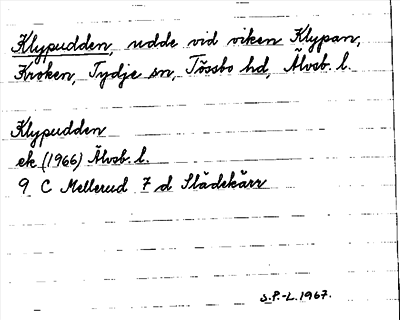 Klypudden, udde vid viken Klypan,
Kroken, Tydje sn, Tössbo hd, Älvsb. l.
Klypudden
ek (1966) Älvsb. l.
9 C Mellerud 7 d Slädekärr
S.P.-L. 1967.